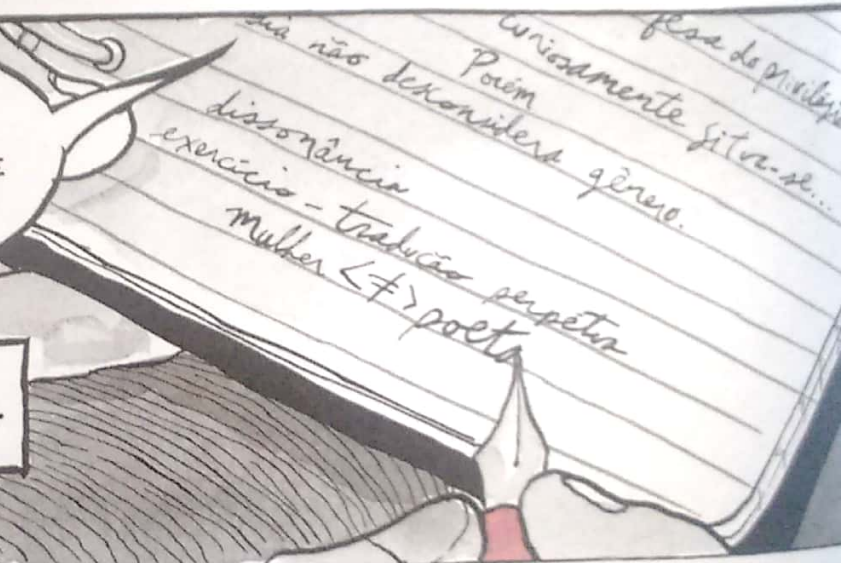 fesa do privilégio
Curiosamente situa-se...
Porém
sia não desconsidera gênero.
dissonância
exercício - tradução perpétua
mulher <≠> poeta